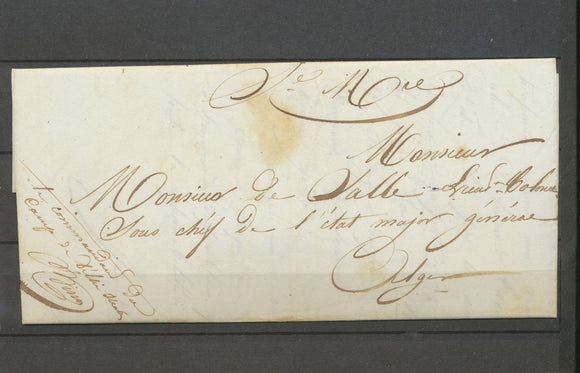 Se Mre
Monsieur
Monsieur de Salle Lieut-Colonel
Sous chef de l'état major général
Alger
le commandant du
Camp de